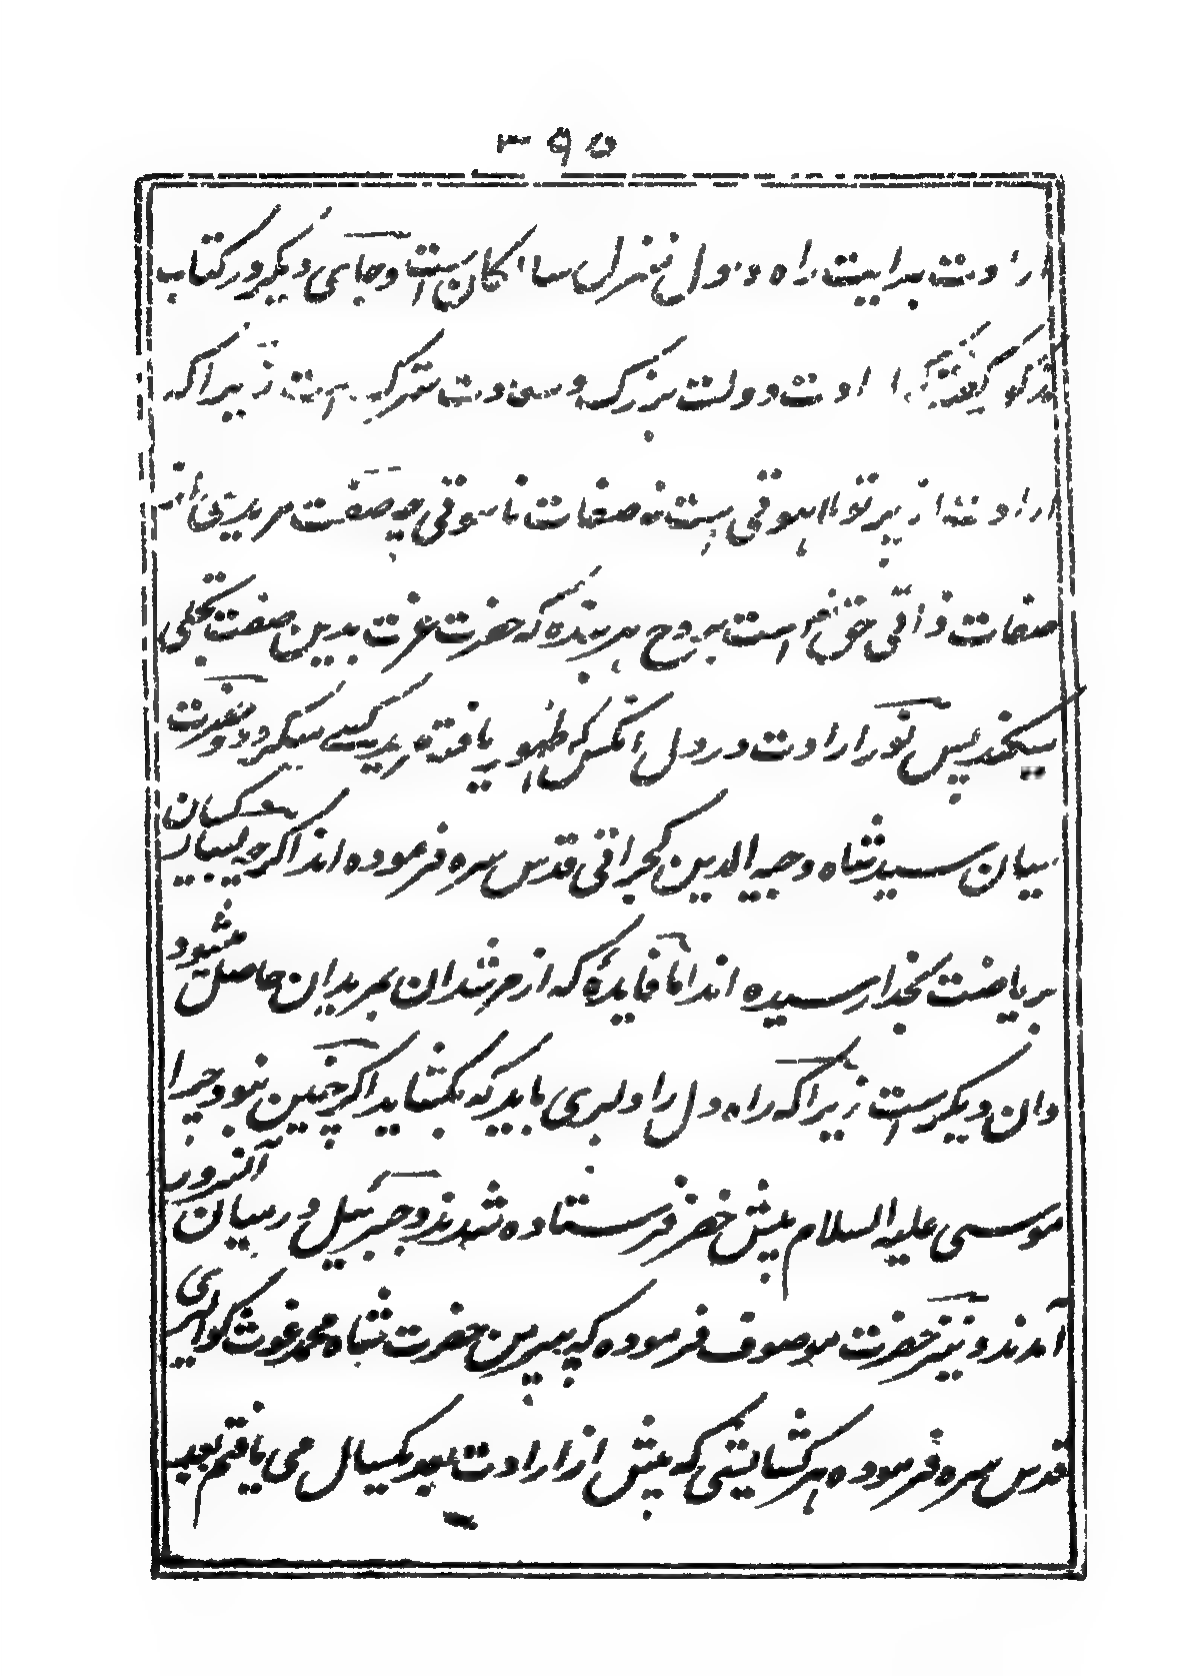 ۳۹۵
ارادت بدایت راه و اول منزل سالکان است و جای دیگر در کتاب
مذکور گفته ارادت دولت بزرگ و سعادت سترگ است زیراکه
ارادت از پرتو لاهوتی است نه صفات ناسوتی چه صفت مریدی از
صفات ذاتی حق است بروح هر بندهٔ که حضرت عزت بدین صفت تجلی
میکند پس نور ارادت در دل آنکس که ظهور یافته مرید کسے میگردد و حضرت
میان سید شاه وجیه الدین گجراتی قدس سره فرموده اند اگرچه بسیار کسان
بریاضت بخدا رسیده اند اما فایدهٔ که از مرشدان بمریدان حاصل میشود
وان دیگرست زیراکه راه دل را دلبری باید که بکشاید اگر چنین نبود چرا
موسی علیه السلام پیش خضر فرستاده شدند و جبرئیل در میان آنروز
آمدند و نیز حضرت موصوف فرموده که پیر من حضرت شاه محمد غوث گوالیری
قدس سره فرموده هر کشایشی که پیش از ارادت بعد یکسال می یافتم بعد